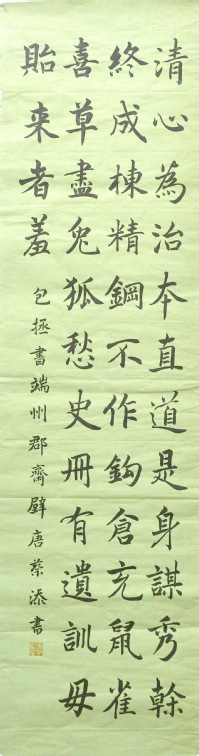 清心為治本直道是身謀秀榦
終成棟精鋼不作鈎倉充鼠雀
喜草盡兔狐愁史冊有遺訓毋
貽来者羞
包拯書端州郡齋壁唐蔡添書